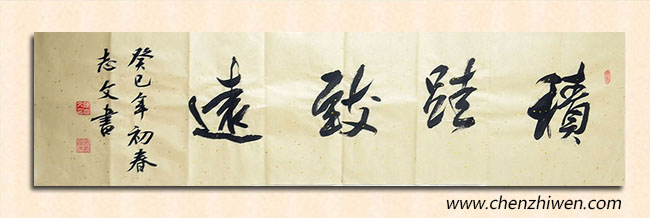 積跬致遠
癸巳年初春
志文書
www.chenzhiwen.com